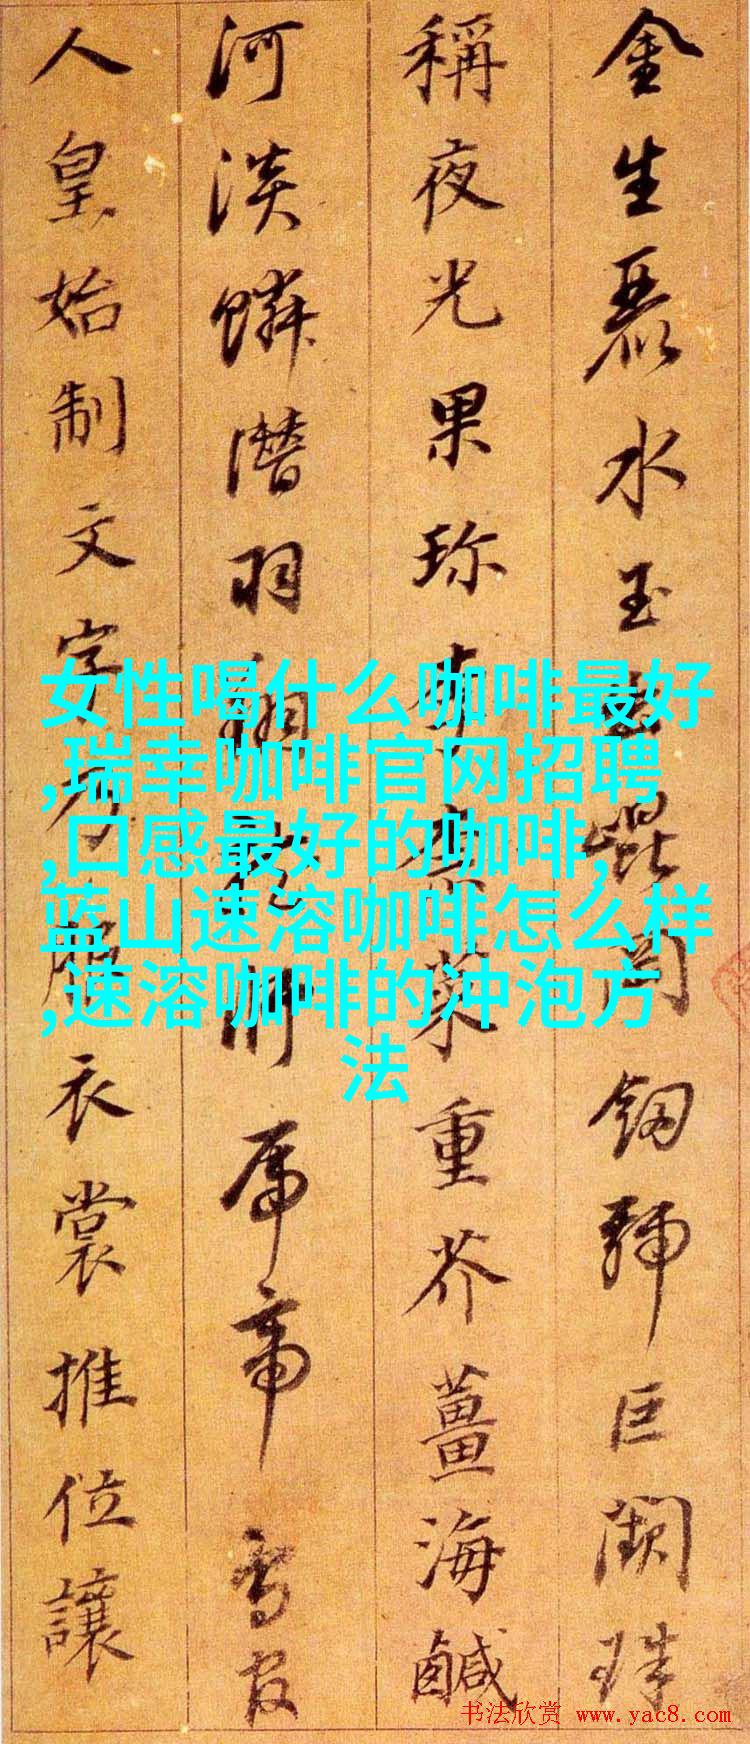 金生麗水玉出崑岡釼號巨闕珠
稱夜光果珎李柰菜重芥薑海鹹
河淡鱗潛羽翔龍師火帝鳥官
人皇始制文字乃服衣裳推位讓
女性喝什么咖啡最好
,瑞幸咖啡官网招聘
,口感最好的咖啡,
蓝山速溶咖啡怎么样
,速溶咖啡的冲泡方
法
书法欣赏 www.yac8.com